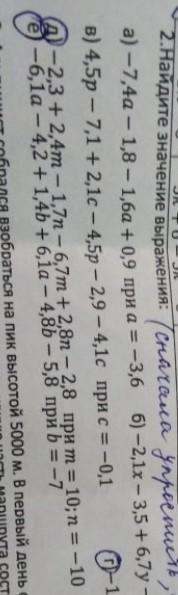 2.Найдите значение выражения: (сначала упростить,
а) −7,4a − 1,8 − 1,6a + 0,9 при a = −3,6 б) −2,1x − 3,5 + 6,7y −
в) 4,5p − 7,1 + 2,1c − 4,5p − 2,9 − 4,1c при c = −0,1 г) −1
д) −2,3 + 2,4m − 1,7n − 6,7m + 2,8n − 2,8 при m = 10; n = −10
е) −6,1a − 4,2 + 1,4b + 6,1a − 4,8b − 5,8 при b = −7
собрался взобраться на пик высотой 5000 м. В первый день
часть маршрута